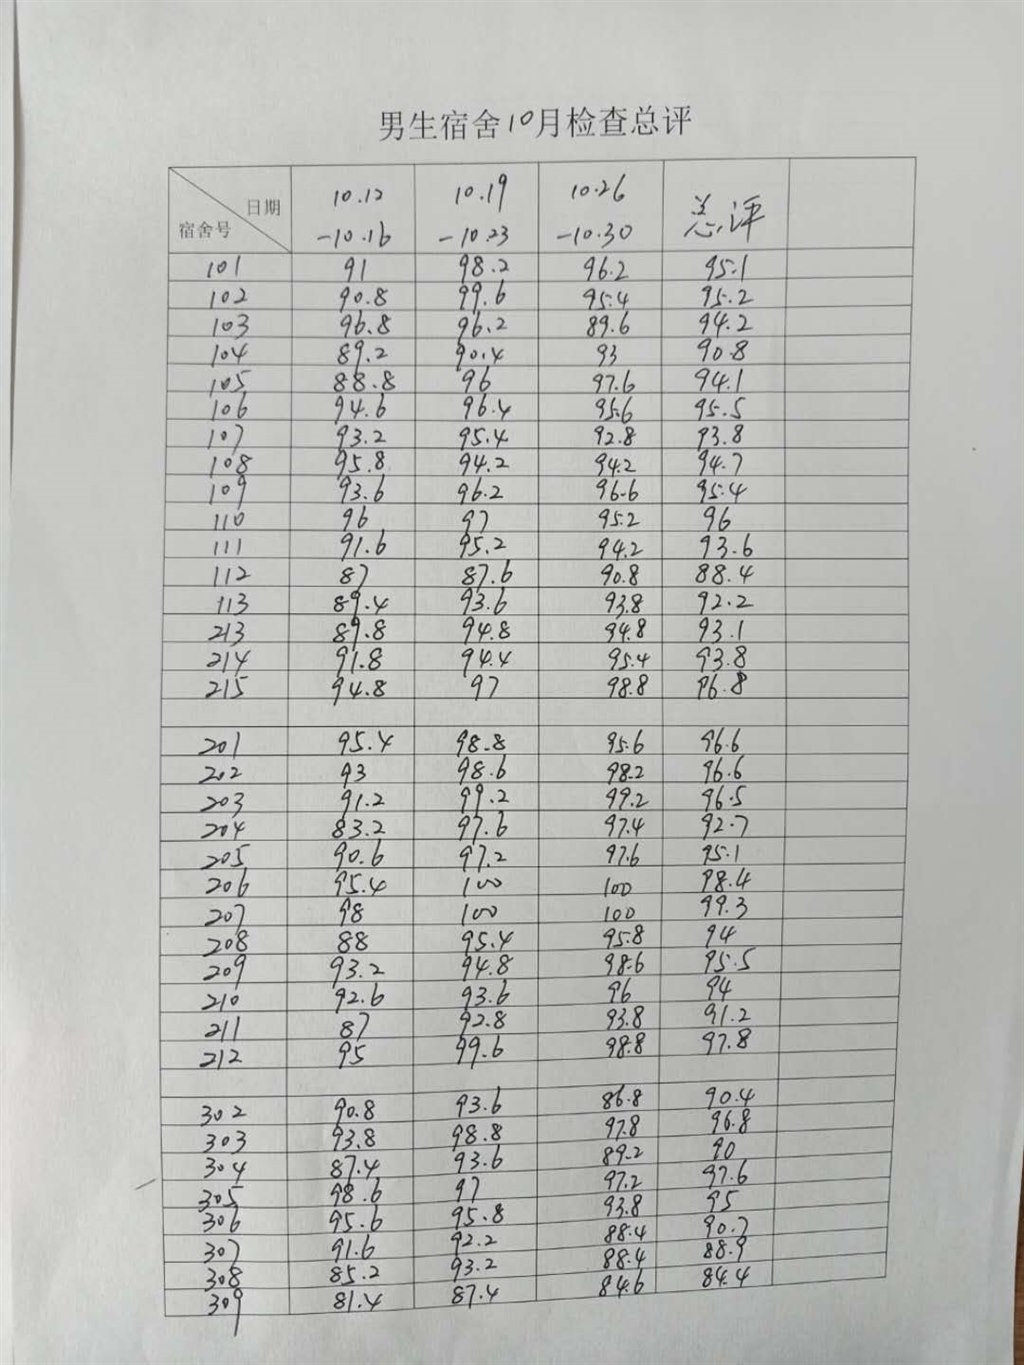 男生宿舍10月检查总评
日期 宿舍号 10.12-10.16 10.19-10.23 10.26-10.30 总评
101 91 98.2 96.2 95.1
102 90.8 99.6 95.4 95.2
103 96.8 96.2 89.6 94.2
104 89.2 90.4 93 90.8
105 88.8 96 97.6 94.1
106 94.6 96.4 95.6 95.5
107 93.2 95.4 92.8 93.8
108 95.8 94.2 94.2 94.7
109 93.6 96.2 96.6 95.4
110 96 97 95.2 96
111 91.6 95.2 94.2 93.6
112 87 87.6 90.8 88.4
113 89.4 93.6 93.8 92.2
213 89.8 94.8 94.8 93.1
214 91.8 94.4 95.4 93.8
215 94.8 97 98.8 96.8
201 95.4 98.8 95.6 96.6
202 93 98.6 98.2 96.6
203 91.2 99.2 99.2 96.5
204 83.2 97.6 97.4 92.7
205 90.6 97.2 97.6 95.1
206 95.4 100 100 98.4
207 98 100 100 99.3
208 88 95.4 95.8 94
209 93.2 94.8 98.6 95.5
210 92.6 93.6 96 94
211 87 92.8 93.8 91.2
212 95 99.6 98.8 97.8
302 90.8 93.6 86.8 90.4
303 93.8 98.8 97.8 96.8
304 87.4 93.6 89.2 90
305 98.6 97 97.2 97.6
306 95.6 95.8 93.8 95
307 91.6 92.2 88.4 90.7
308 85.2 93.2 88.4 88.9
309 81.4 87.4 84.6 84.4